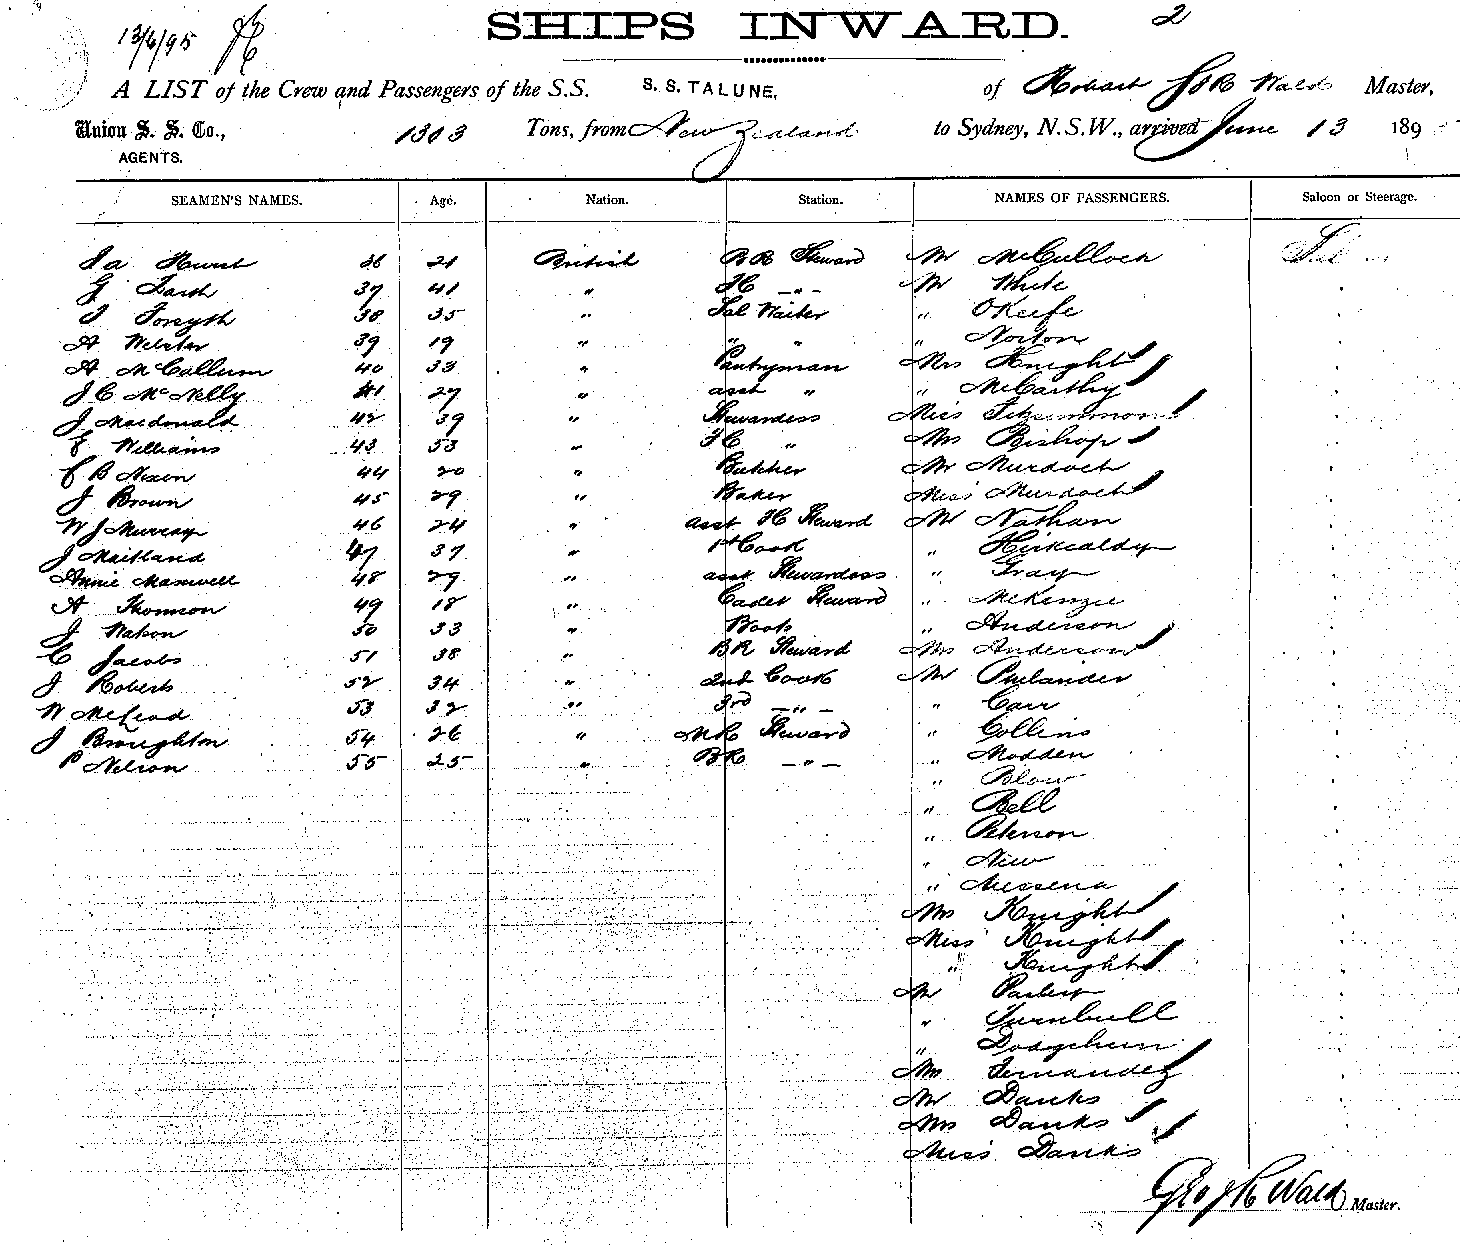 13/6/95
SHIPS INWARD.
2
A LIST of the Crew and Passengers of the S.S. S. S. TALUNE, of Hobart Wald Master,
Union S. S. Co., 1303 Tons, from New Zealand to Sydney, N.S.W., arrived June 13 189
AGENTS.
SEAMEN'S NAMES. Age. Nation. Station. NAMES OF PASSENGERS. Saloon or Steerage.
Hurst 36 21 British BR Steward Mr McCulloch Sal
G 37 41 " FC -"- Mr White
J Forsyth 38 35 " Sal Waiter " OKeefe
A Webster 39 19 " " " " Norton
A McCallum 40 33 " Pantryman Mrs Knight
J C McNelly 41 27 " asst " " McCarthy
J Macdonald 42 39 " Stewardess Miss Fitzsimmons
E Williams 43 53 " FC " Mrs Bishop
C B Nixon 44 20 " Butcher Mr Murdoch
J Brown 45 29 " Baker Miss Murdoch
W J Murray 46 24 " asst FC Steward Mr Nathan
J Maitland 47 37 " 1st Cook " Kirkcaldy
Annie Maxwell 48 29 " asst Stewardess " Gray
A Thomson 49 18 " Cadet Steward " McKenzie
J Watson 50 33 " " Anderson
C Jacobs 51 38 " BR Steward Mrs Anderson
J Roberts 52 34 " 2nd Cook Mr Philander
W McLeod 53 32 " 3rd -"- " Carr
J Broughton 54 26 " Steward " Collins
P Nelson 55 25 " BR -"- " Madden
" Blow
" Bell
" Peterson
" New
" Messena
Mrs Knight
Miss Knight
" Knight
Mr
" Turnbull
"
Mrs Fernandez
Mr Danks
Mrs Danks
Miss Danks
Geo J R Wald Master.